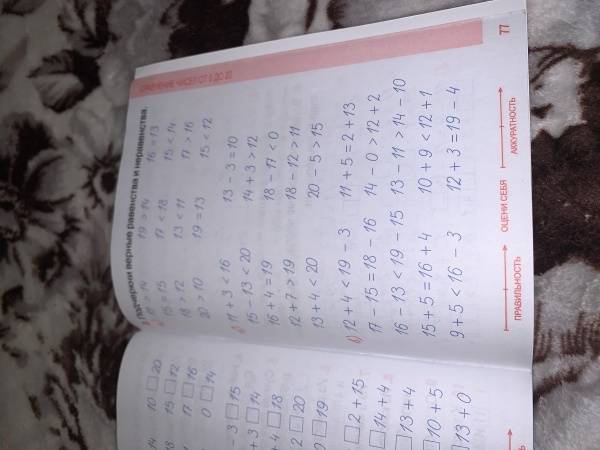 СРАВНЕНИЕ ЧИСЕЛ ОТ 0 ДО 20
Подчеркни верные равенства и неравенства.
> 14 19 > 14 16 = 13
15 = 15 17 < 18 15 < 14
18 > 12 13 < 11 17 > 16
20 > 10 19 = 13 15 < 12
11 + 3 < 16 13 - 3 = 10
15 - 13 < 20 14 + 3 > 12
16 + 4 = 19 18 - 17 < 0
12 + 7 > 19 18 - 12 > 11
13 + 4 < 20 20 - 5 > 15
12 + 4 < 19 - 3 11 + 5 = 2 + 13
17 - 15 = 18 - 16 14 - 0 > 12 + 2
16 - 13 < 19 - 15 13 - 11 > 14 - 10
15 + 5 = 16 + 4 10 + 9 < 12 + 1
9 + 5 < 16 - 3 12 + 3 = 19 - 4
ПРАВИЛЬНОСТЬ ОЦЕНИ СЕБЯ АККУРАТНОСТЬ
77
14 10 □ 20
18 15 □ 12
17 □ 16
0 □ 14
- 3 □ 15
+ 3 □ 14
+ 4 □ 18
2 □ 20
0 □ 19
□ 2 + 15
□ 14 + 4
□ 13 + 4
□ 10 + 5
□ 13 + 0